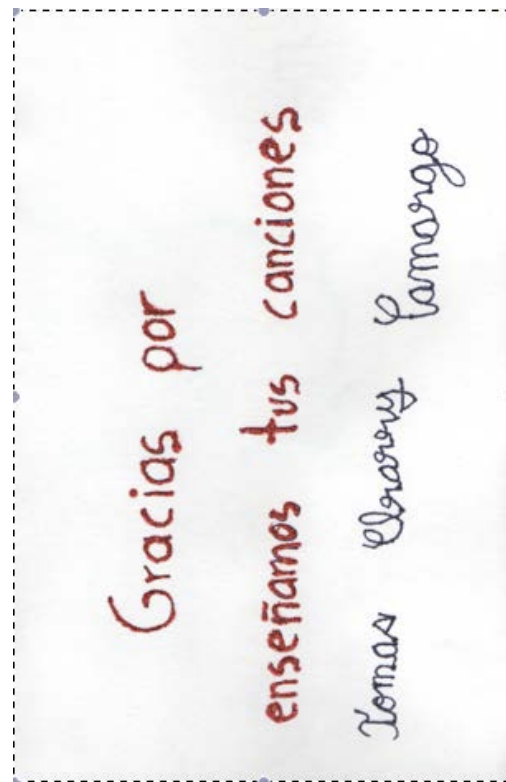 Gracias por
enseñamos tus canciones
Tomas Camargo